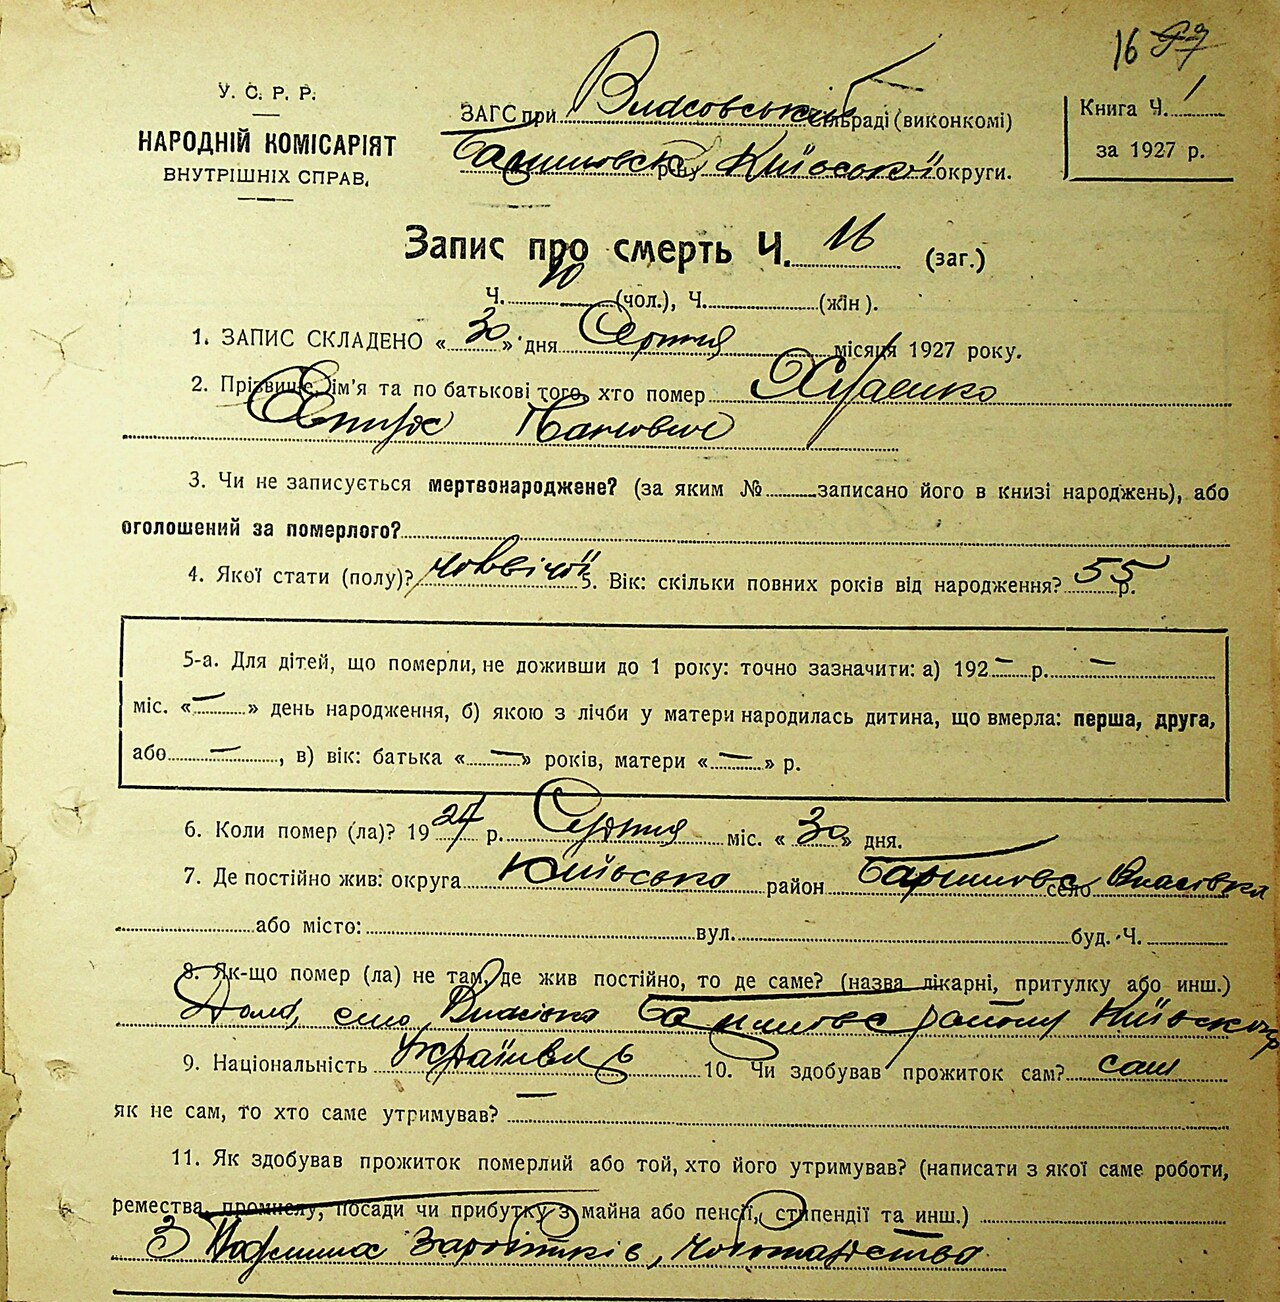 16 97
У. С. Р. Р.
НАРОДНІЙ КОМІСАРІЯТ
ВНУТРІШНІХ СПРАВ.
ЗАГС при Власовській сільраді (виконкомі)
Баришовськ р-ну Київської округи.
Книга Ч. 1
за 1927 р.
Запис про смерть Ч. 16 (заг.)
Ч. 10 (чол.), Ч. (жін).
1. ЗАПИС СКЛАДЕНО « 30 » дня Серпня місяця 1927 року.
2. Прізвище, ім'я та по батькові того, хто помер
Павлович
3. Чи не записується мертвонароджене? (за яким № записано його в книзі народжень), або
оголошений за померлого?
4. Якої стати (полу)? човвічої 5. Вік: скільки повних років від народження? 55 р.
5-а. Для дітей, що померли, не доживши до 1 року: точно зазначити: а) 192 — р. —
міс. « — » день народження, б) якою з лічби у матери народилась дитина, що вмерла: перша, друга,
або — , в) вік: батька « — » років, матери « — » р.
6. Коли помер (ла)? 1927 р. Серпня міс. « 30 » дня.
7. Де постійно жив: округа Київсько район Баришовс село Власівка
або місто: вул. буд. Ч.
8. Як-що помер (ла) не там, де жив постійно, то де саме? (назва лікарні, притулку або инш.)
Дома, село Власівка Баришовс району Київської
9. Національність Українець 10. Чи здобував прожиток сам? сам
як не сам, то хто саме утримував? —
11. Як здобував прожиток померлий або той, хто його утримував? (написати з якої саме роботи,
ремества, промислу, посади чи прибутку з майна або пенсії, стипендії та инш.)
З заробітків,